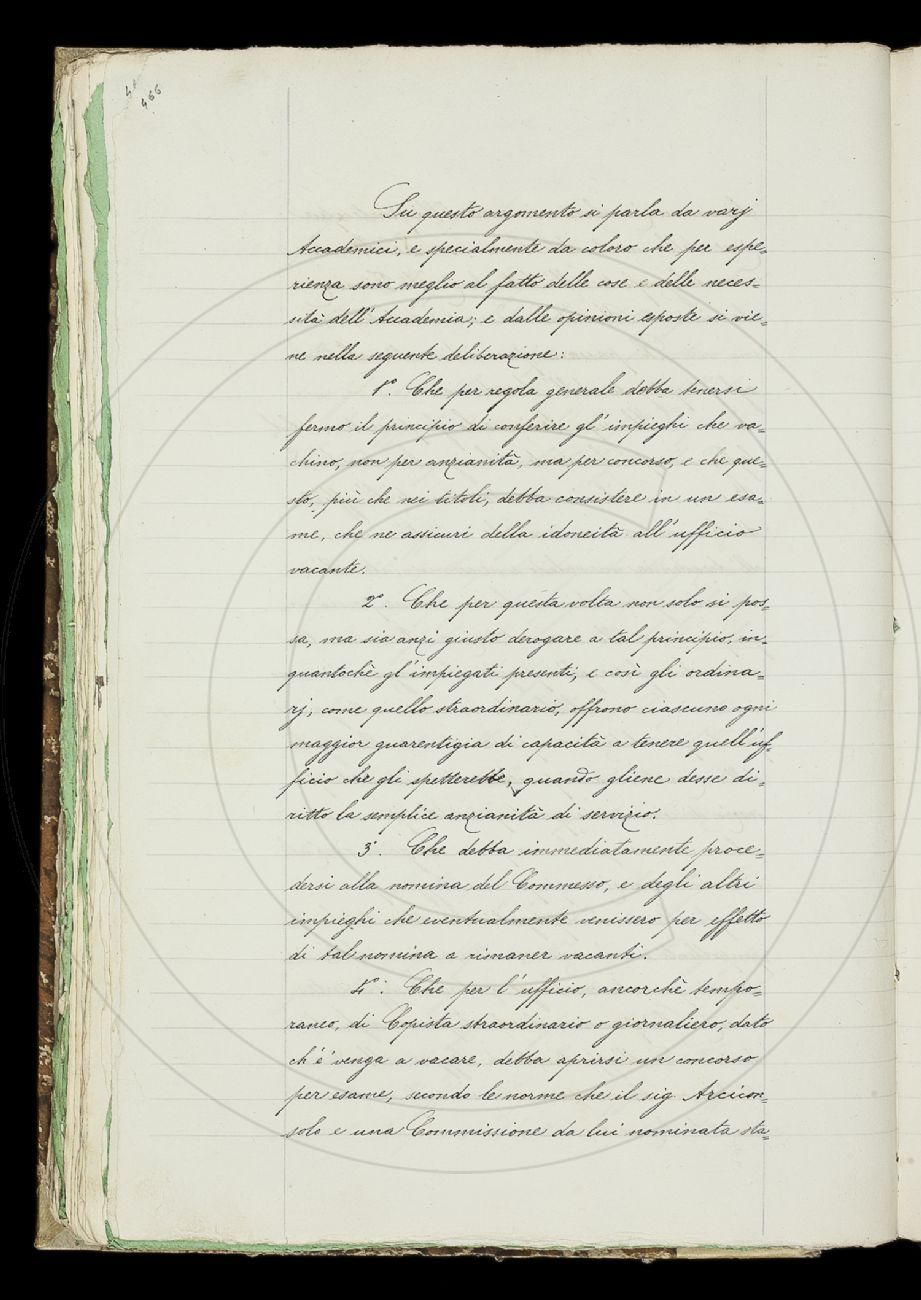 466
Su questo argomento si parla da varj
Accademici, e specialmente da coloro che per espe=
rienza sono meglio al fatto delle cose e delle neces=
sità dell'Accademia; e dalle opinioni esposte si vie=
ne nella seguente deliberazione:
1°. Che per regola generale debba tenersi
fermo il principio di conferire gl'impieghi che va=
chino, non per anzianità, ma per concorso, e che que=
sto, più che nei titoli, debba consistere in un esa=
me, che ne assicuri della idoneità all'ufficio
vacante.
2°. Che per questa volta non solo si pos=
sa, ma sia anzi giusto derogare a tal principio, in=
quantochè gl'impiegati presenti, e così gli ordina=
rj, come quello straordinario, offrono ciascuno ogni
maggior guarentigia di capacità a tenere quell'uf=
ficio che gli spetterebbe, quando gliene desse di=
ritto la semplice anzianità di servizio.
3°. Che debba immediatamente proce=
dersi alla nomina del Commesso, e degli altri
impieghi che eventualmente venissero per effetto
di tal nomina a rimaner vacanti.
4°. Che per l'ufficio, ancorchè tempo=
raneo, di Copista straordinario o giornaliero, dato
ch'e' venga a vacare, debba aprirsi un concorso
per esame, secondo le norme che il sig. Arcicon=
solo e una Commissione da lui nominata sta=